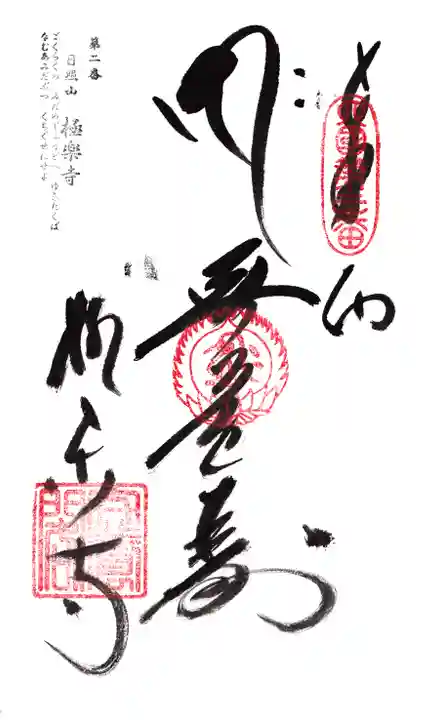 奉納
無量寿
極楽寺
第二番
日照山 極樂寺
ごくらくの みだのじょうどへ ゆきたくば
なむあみだぶつ くちぐせにせよ